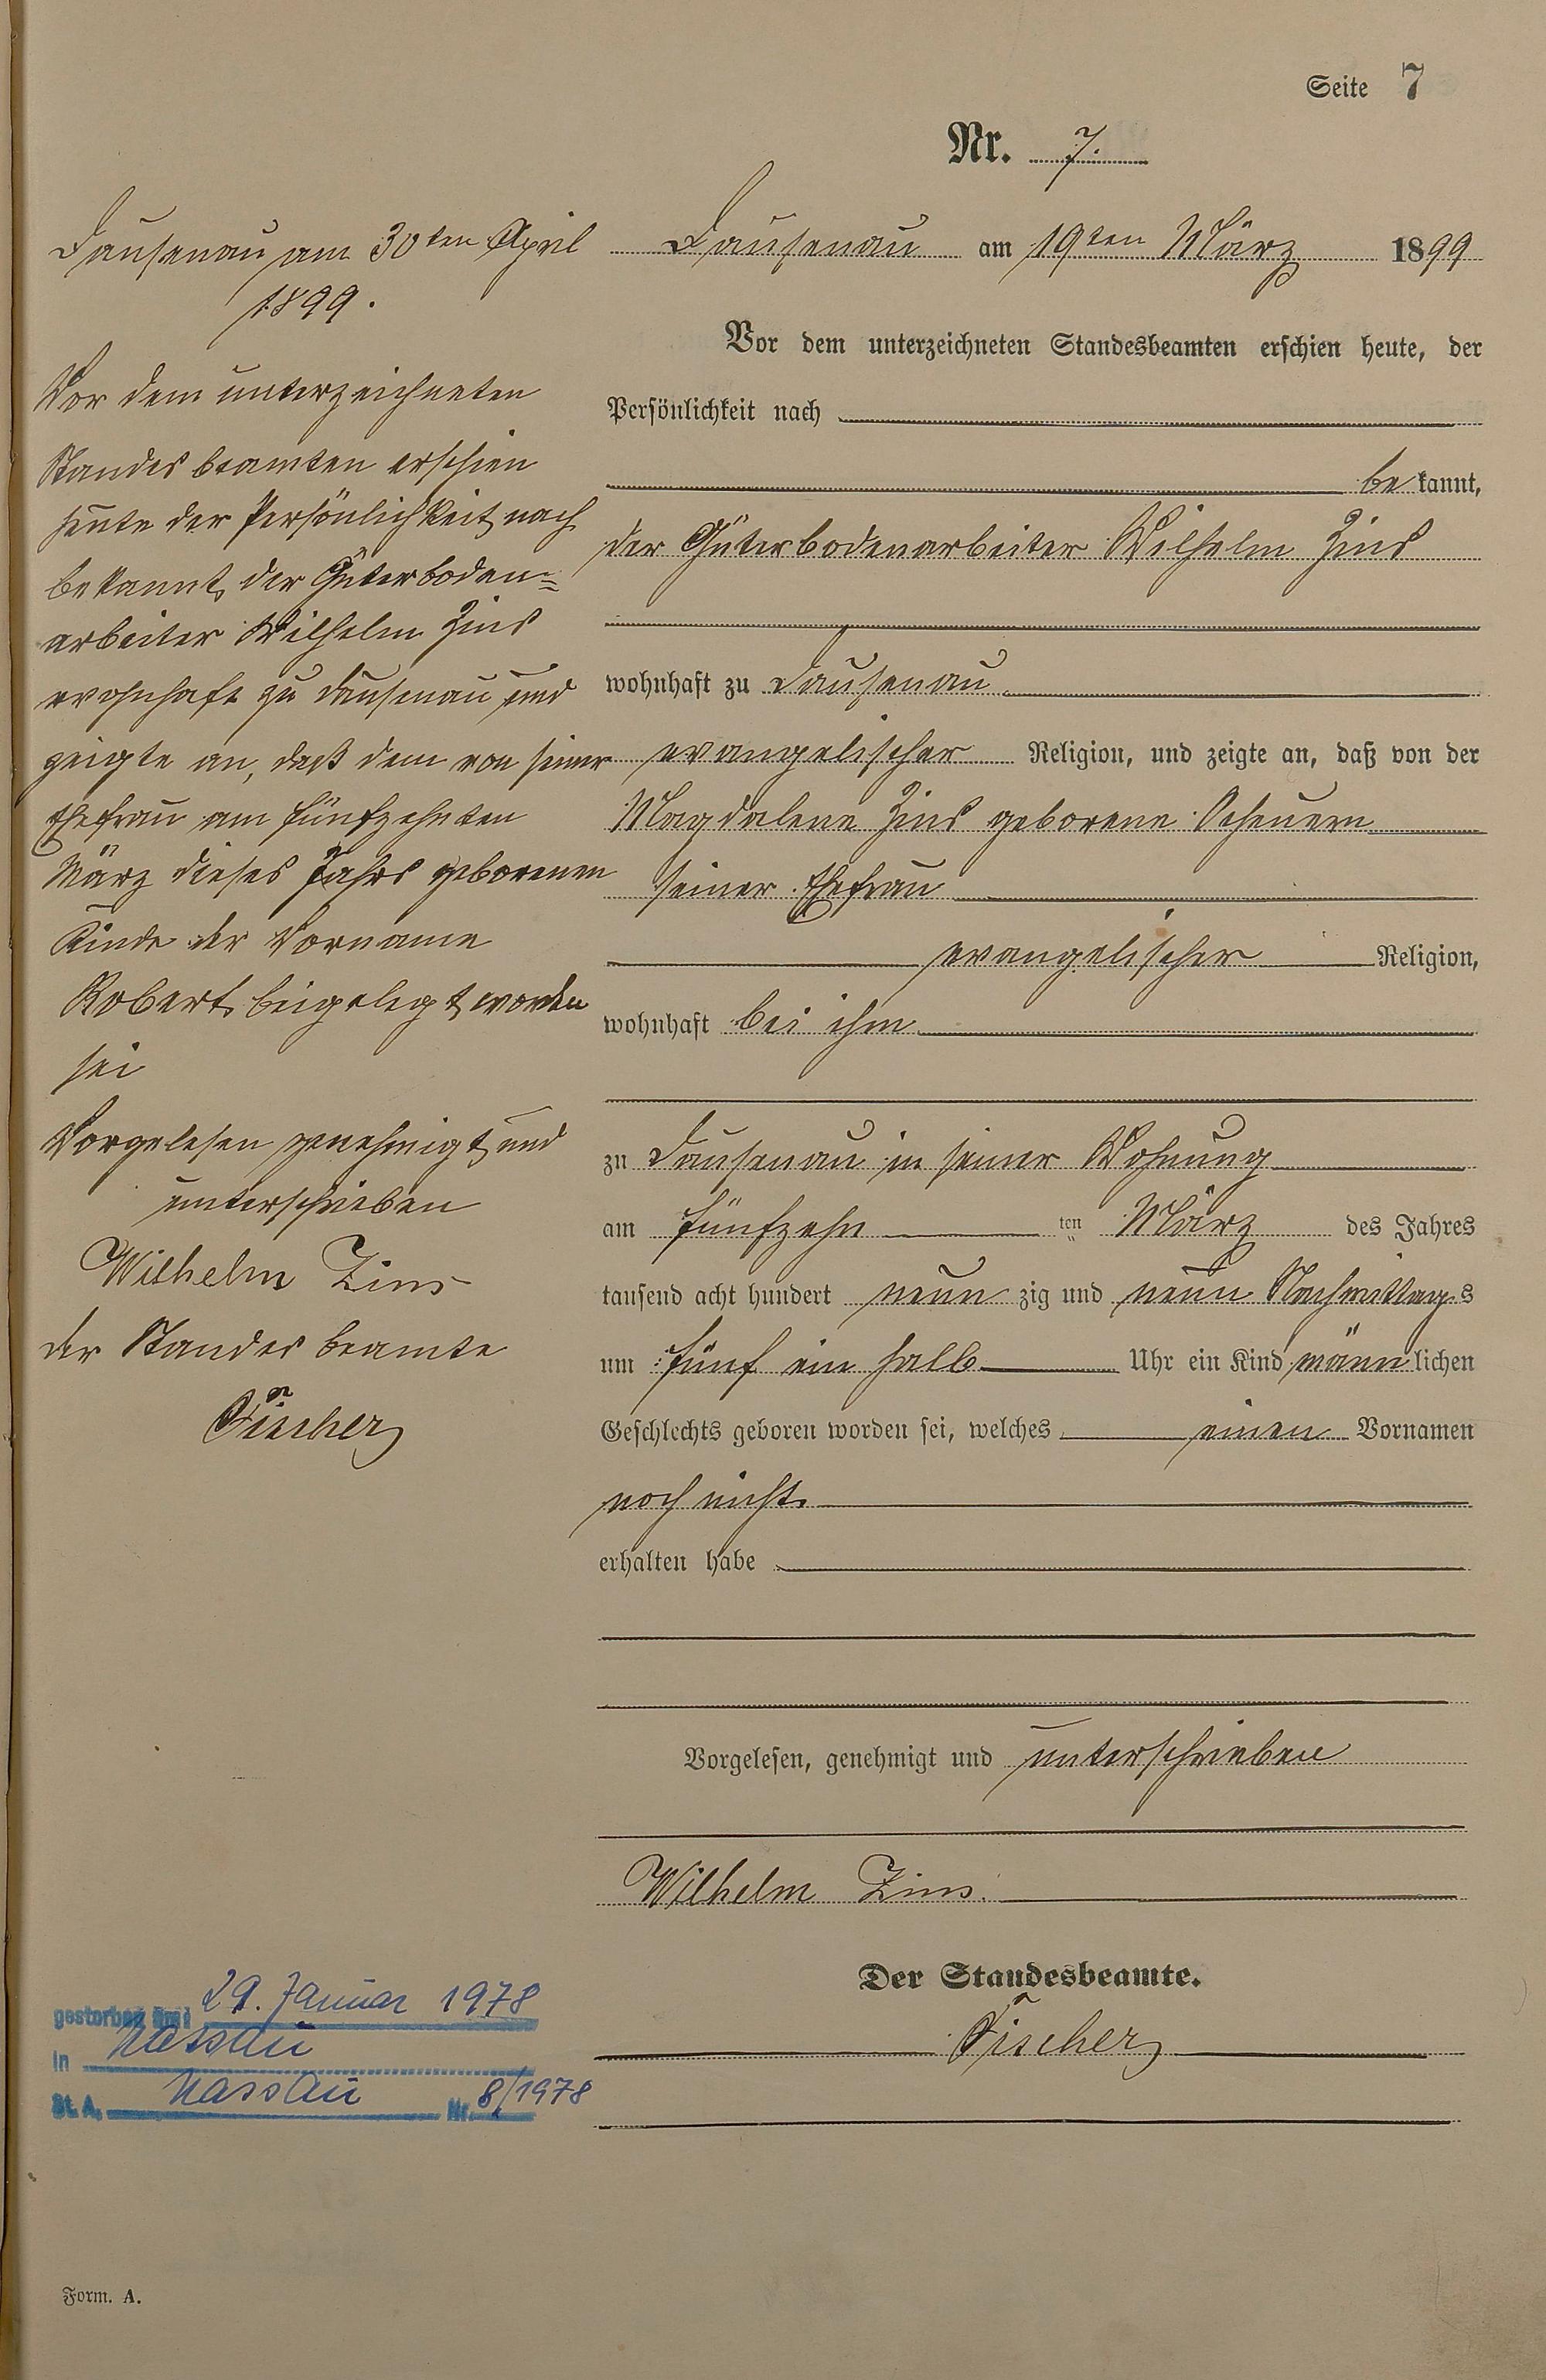 Seite 7
Nr. 7.
Dausenau am 19ten März 1899
Vor dem unterzeichneten Standesbeamten erschien heute, der
Persönlichkeit nach
be kannt,
der Güterbodenarbeiter Wilhelm Zins
wohnhaft zu Dausenau
evangelischer Religion, und zeigte an, daß von der
Magdalena Zins geborene Scheuern
seiner Ehefrau
evangelischer Religion,
wohnhaft bei ihm
zu Dausenau in seiner Wohnung
am fünfzehn ten März des Jahres
tausend acht hundert neun zig und neun Nachmittags
um fünf ein halb Uhr ein Kind männ lichen
Geschlechts geboren worden sei, welches einen Vornamen
noch nicht
erhalten habe
Vorgelesen, genehmigt und unterschrieben
Wilhelm Zins.
Der Standesbeamte.
Fischer
Dausenau am 30ten April
1899.
Vor dem unterzeichneten
Standesbeamten erschien
heute der Persönlichkeit nach
bekannt, der Güterboden=
arbeiter Wilhelm Zins
wohnhaft zu Dausenau und
zeigte an, daß dem von seiner
Ehefrau am fünfzehnten
März dieses Jahrs geborenen
Kinde der Vorname
Robert beigelegt worden
sei
Vorgelesen genehmigt und
unterschrieben
Wilhelm Zins
der Standesbeamte
Fischer
gestorben am: 29. Januar 1978
in Nassau
St. A. Nassau Nr. 8/1978
Form. A.